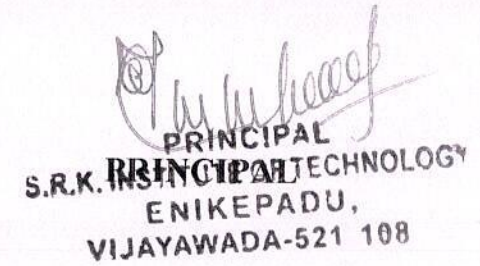 PRINCIPAL
PRINCIPAL
S.R.K. INSTITUTE OF TECHNOLOGY
ENIKEPADU,
VIJAYAWADA-521 108